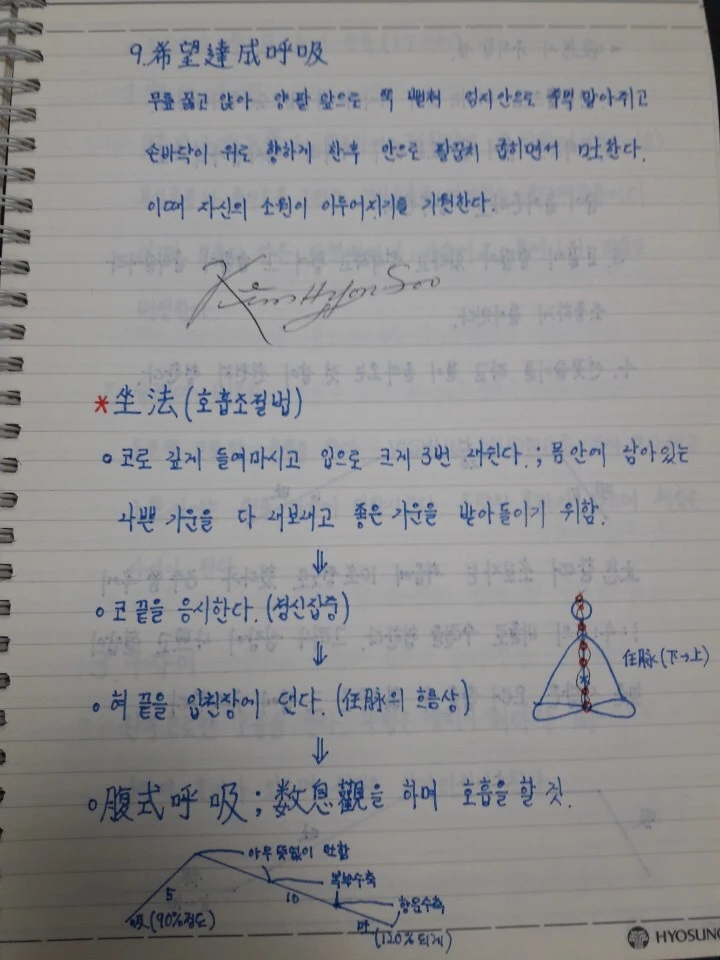 9. 希望達成呼吸
무릎 꿇고 앉아 양팔 앞으로 쭉 뻗혀 엄지안으로 주먹 말아쥐고
손바닥이 위로 향하게 한후 안으로 팔꿈치 굽히면서 吐한다.
이때 자신의 소원이 이루어지기를 기원한다.
Kim Hyon Soo
* 坐法 (호흡조절법)
o 코로 깊게 들여마시고 입으로 크게 3번 내쉰다.; 몸 안에 남아있는
나쁜 기운을 다 내보내고 좋은 기운을 받아들이기 위함.
⇓
o 코 끝을 응시한다. (정신집중)
⇓
任脉 (下→上)
o 혀 끝을 입천장에 댄다. (任脉의 흐름상)
⇓
o 腹式呼吸; 数息觀을 하며 호흡을 할 것.
아무 뜻없이 止함
복부수축
항문수축
5
10
吸 (90%정도)
吐 (120% 되게)
HYOSUNG